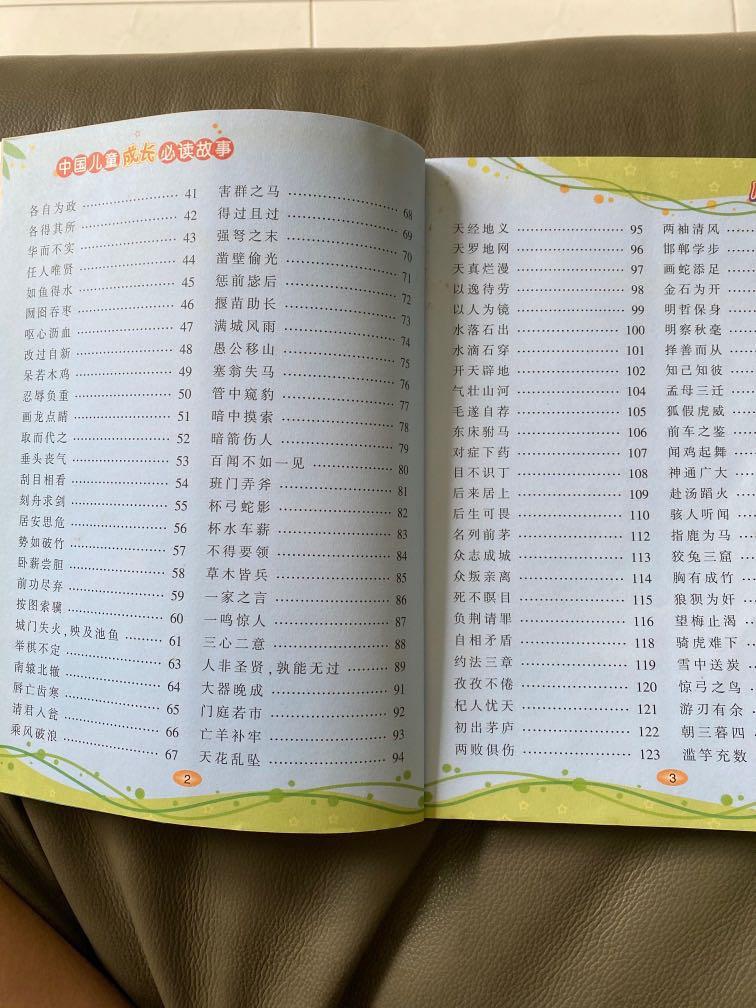 中国儿童成长必读故事
各自为政 41
各得其所 42
华而不实 43
任人唯贤 44
如鱼得水 45
囫囵吞枣 46
呕心沥血 47
改过自新 48
呆若木鸡 49
忍辱负重 50
画龙点睛 51
取而代之 52
垂头丧气 53
刮目相看 54
刻舟求剑 55
居安思危 56
势如破竹 57
卧薪尝胆 58
前功尽弃 59
按图索骥 60
城门失火,殃及池鱼 61
举棋不定 63
南辕北辙 64
唇亡齿寒 65
请君入瓮 66
乘风破浪 67
害群之马 68
得过且过 69
强弩之末 70
凿壁偷光 71
惩前毖后 72
揠苗助长 73
满城风雨 74
愚公移山 75
塞翁失马 76
管中窥豹 77
暗中摸索 78
暗箭伤人 79
百闻不如一见 80
班门弄斧 81
杯弓蛇影 82
杯水车薪 83
不得要领 84
草木皆兵 85
一家之言 86
一鸣惊人 87
三心二意 88
人非圣贤,孰能无过 89
大器晚成 91
门庭若市 92
亡羊补牢 93
天花乱坠 94
2
天经地义 95
天罗地网 96
天真烂漫 97
以逸待劳 98
以人为镜 99
水落石出 100
水滴石穿 101
开天辟地 102
气壮山河 104
毛遂自荐 105
东床驸马 106
对症下药 107
目不识丁 108
后来居上 109
后生可畏 110
名列前茅 112
众志成城 113
众叛亲离 114
死不瞑目 115
负荆请罪 116
自相矛盾 118
约法三章 119
孜孜不倦 120
杞人忧天 121
初出茅庐 122
两败俱伤 123
两袖清风
邯郸学步
画蛇添足
金石为开
明哲保身
明察秋毫
择善而从
知己知彼
孟母三迁
狐假虎威
前车之鉴
闻鸡起舞
神通广大
赴汤蹈火
骇人听闻
指鹿为马
狡兔三窟
胸有成竹
狼狈为奸
望梅止渴
骑虎难下
雪中送炭
惊弓之鸟
游刃有余
朝三暮四
滥竽充数
3